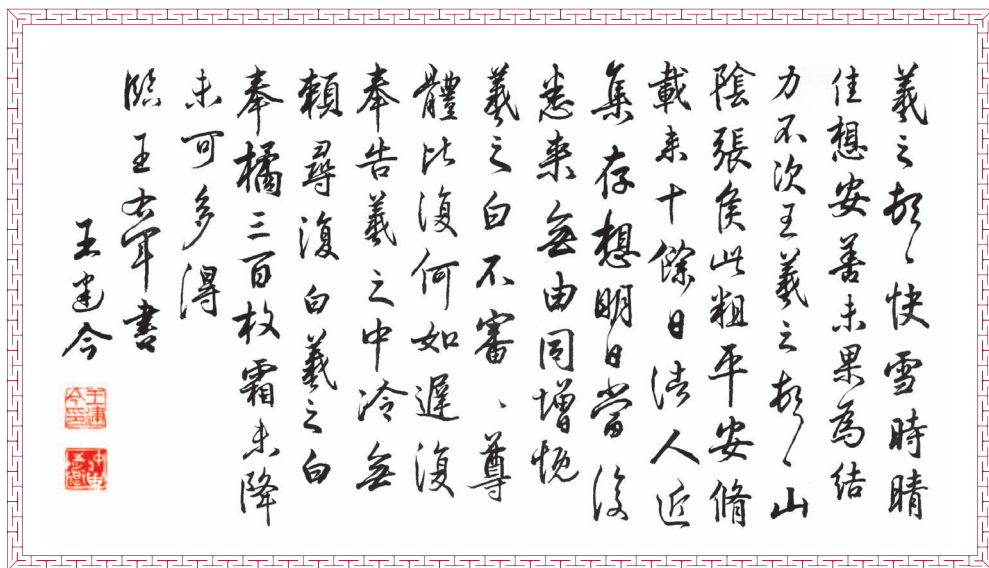 羲之頓、快雪時晴
佳想安善未果為結
力不次王羲之頓、山
陰張侯此粗平安脩
載来十餘日諸人近
集存想明日當復
悉来無由同增慨
羲之白不審、尊
體比復何如遲復
奉告羲之中冷無
賴尋復白羲之白
奉橘三百枚霜未降
未可多得
臨王右軍書
王建今
王建今印